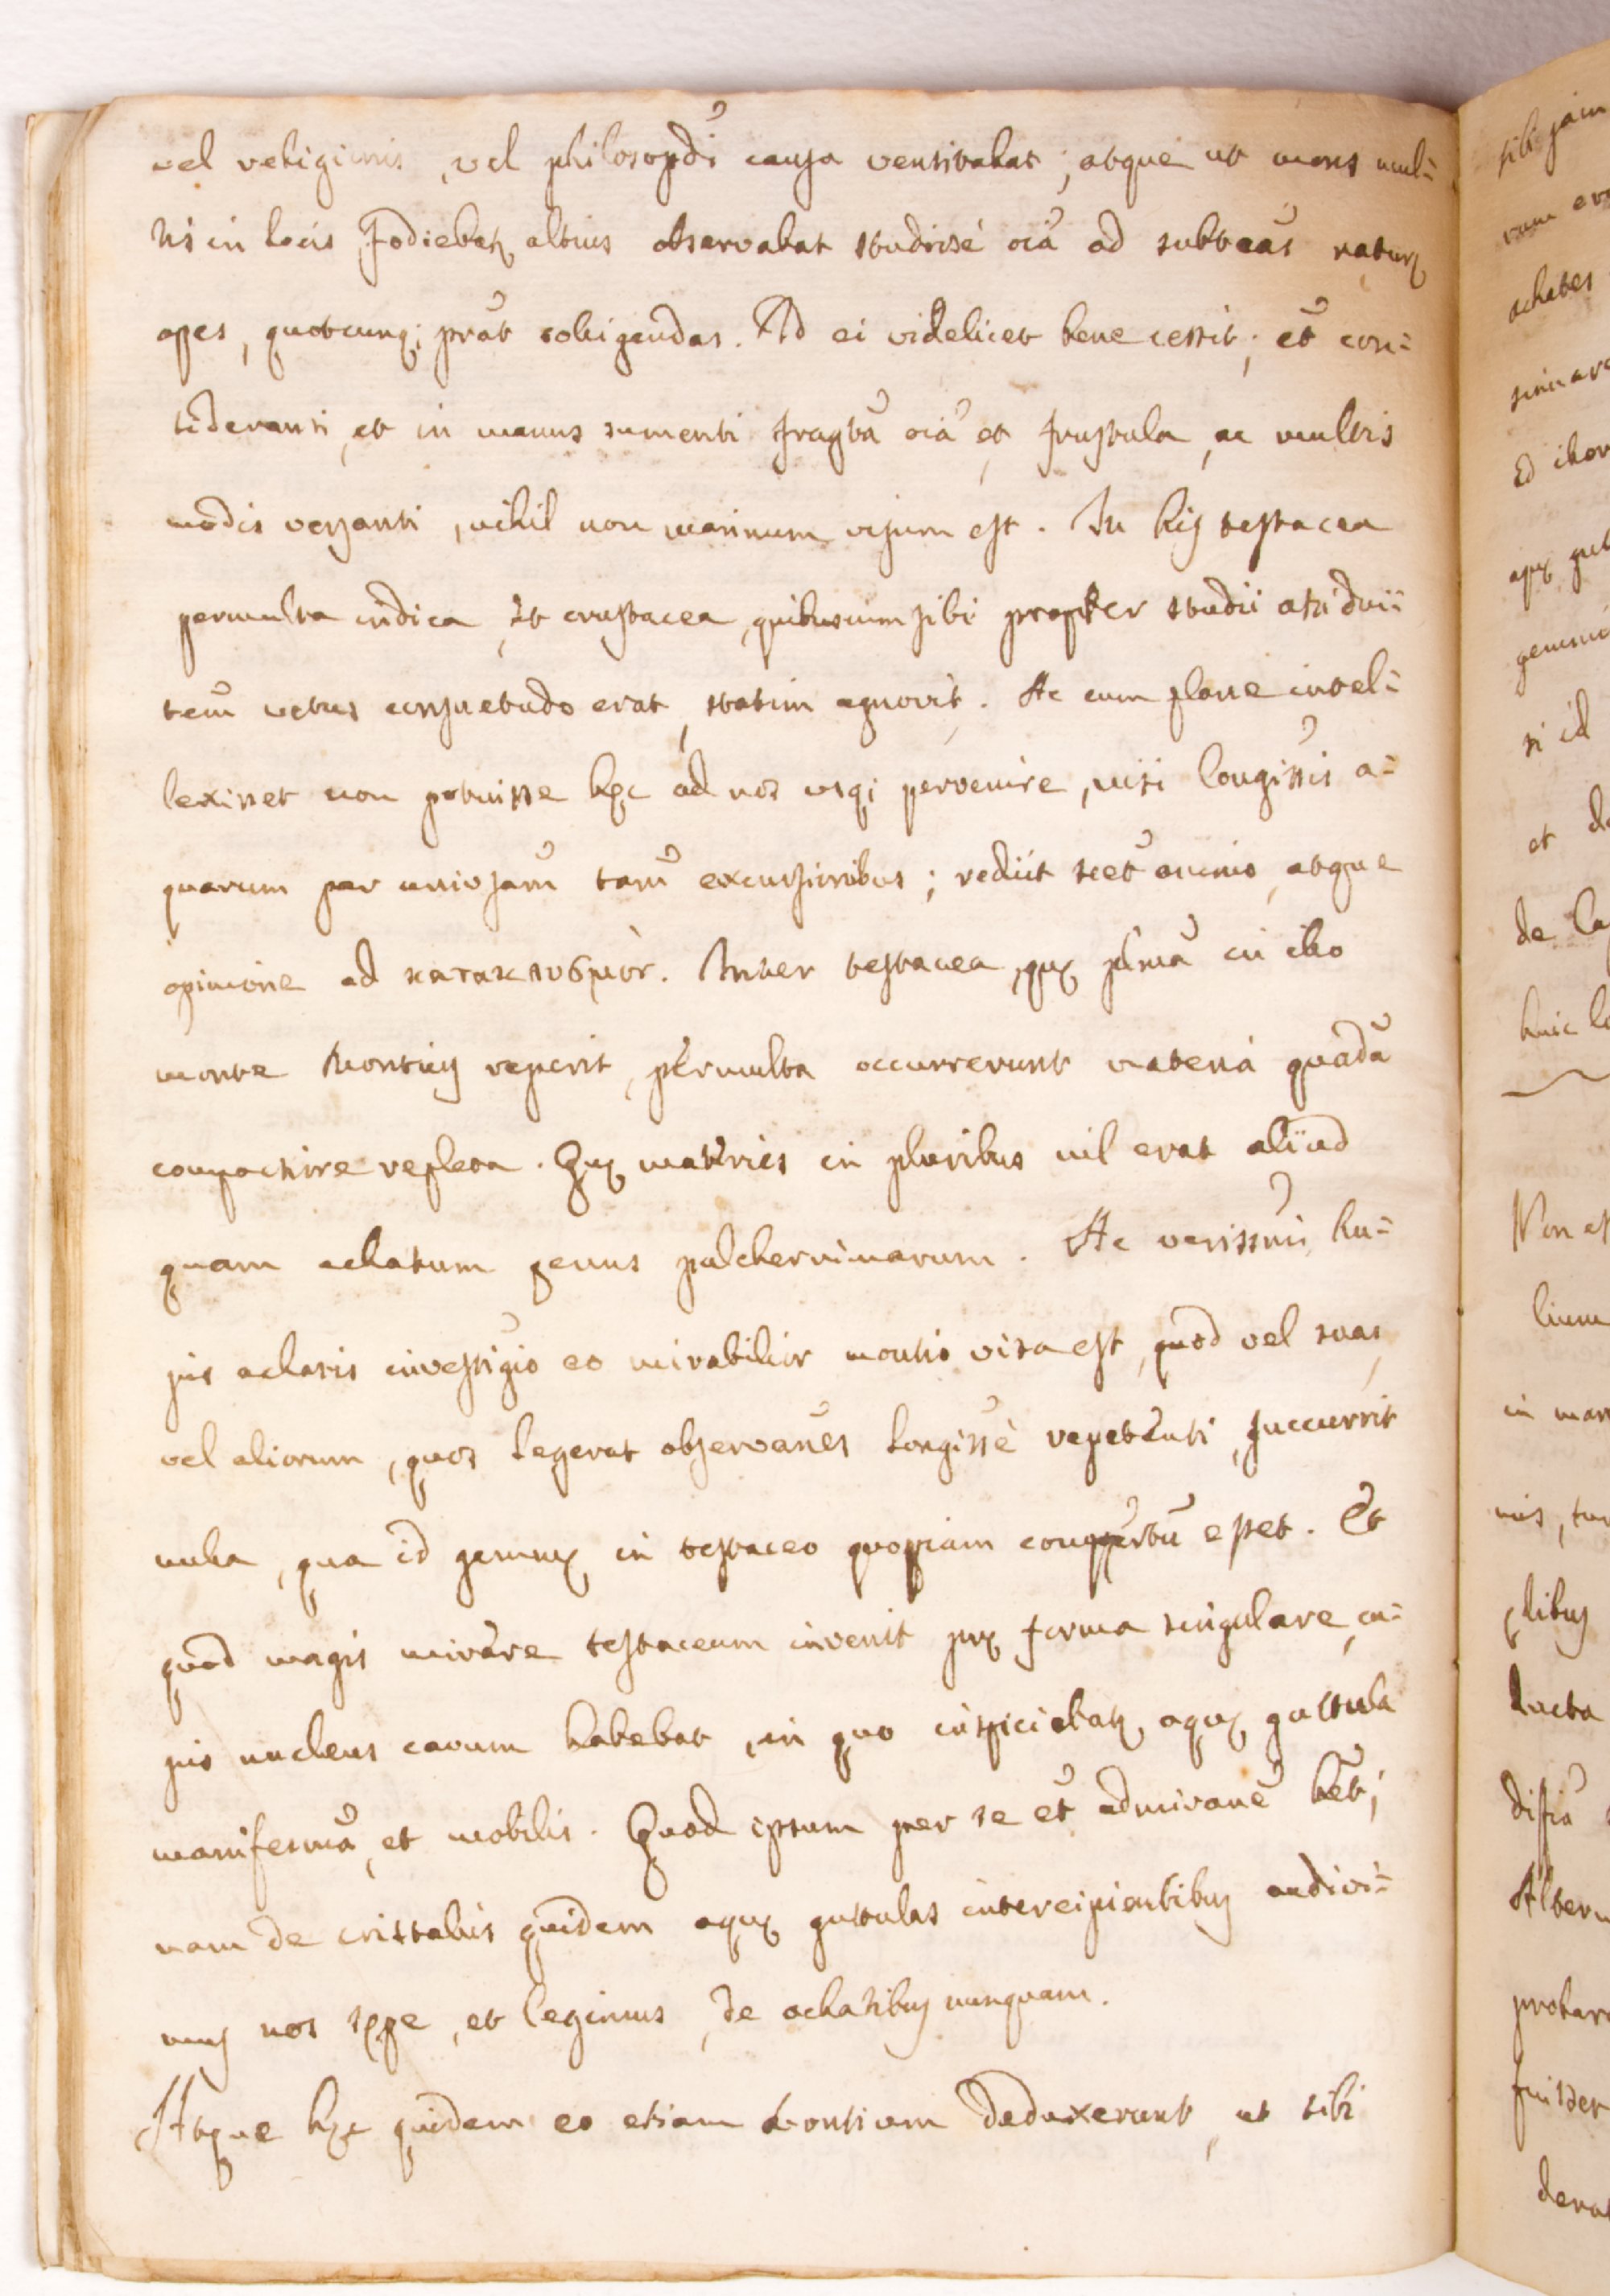 vel religionis, vel philosopdi causa ventitabat; atque ut mons mul=
tis in locis fodiebatʳ altius observabat studiosè oiã ad subteãs naturę
opes, quotcunq; prãt colligendas. Id ei videlicet bene cessit; et̃ con=
sideranti, et in manus sumenti fragt̃a oiã et frustula, ac multis
modis versanti, nihil non marinum visum est. In his testacea
permulta indica, et crustacea, quibuscum sibi propter studii assidui=
tem̃ vetus consuetudo erat, statim agnovit. Ac cum plane intel=
lexisset non potuisse hęc ad nos usq; pervenire, nisi longissis̃ a=
quarum per univsam̃ tam̃ excursionibus; rediit scet̃ animo, atque
opinione ad κατακλυσμὸν. Inter testacea, quę plimã in illo
monte Montius reperit, permulta occurrerunt materia quadã
compactiore repleta. Quę matćries in pluribus nil erat aliud
quam achatum genus pulcherrimarum. Ac verissimi hu=
jus achatis investigio eo mirabilior montio visa est, quod vel suas,
vel aliorum, quos legerat observanẽs longissẽ repetenti, succurrit
nulla, qua id gemmę in testaceo quopiam compertũ esset. Et
quod magis mirère testaceum invenit prę forma singulare, cu=
jus nucleus cavum habebat, in quo inspiciebatʳ aquę guttula
manifesmã, et mobilis. Quod ipsum per se et̃ admiranẽ hẽt;
nam de cristallis quidem aquę guttulas intercipientibus audivi=
mus nos sępe, et legimus, de achatibus nunquam.
Atque hęc quidem eo etiam Montium deduxerunt, ut sibi